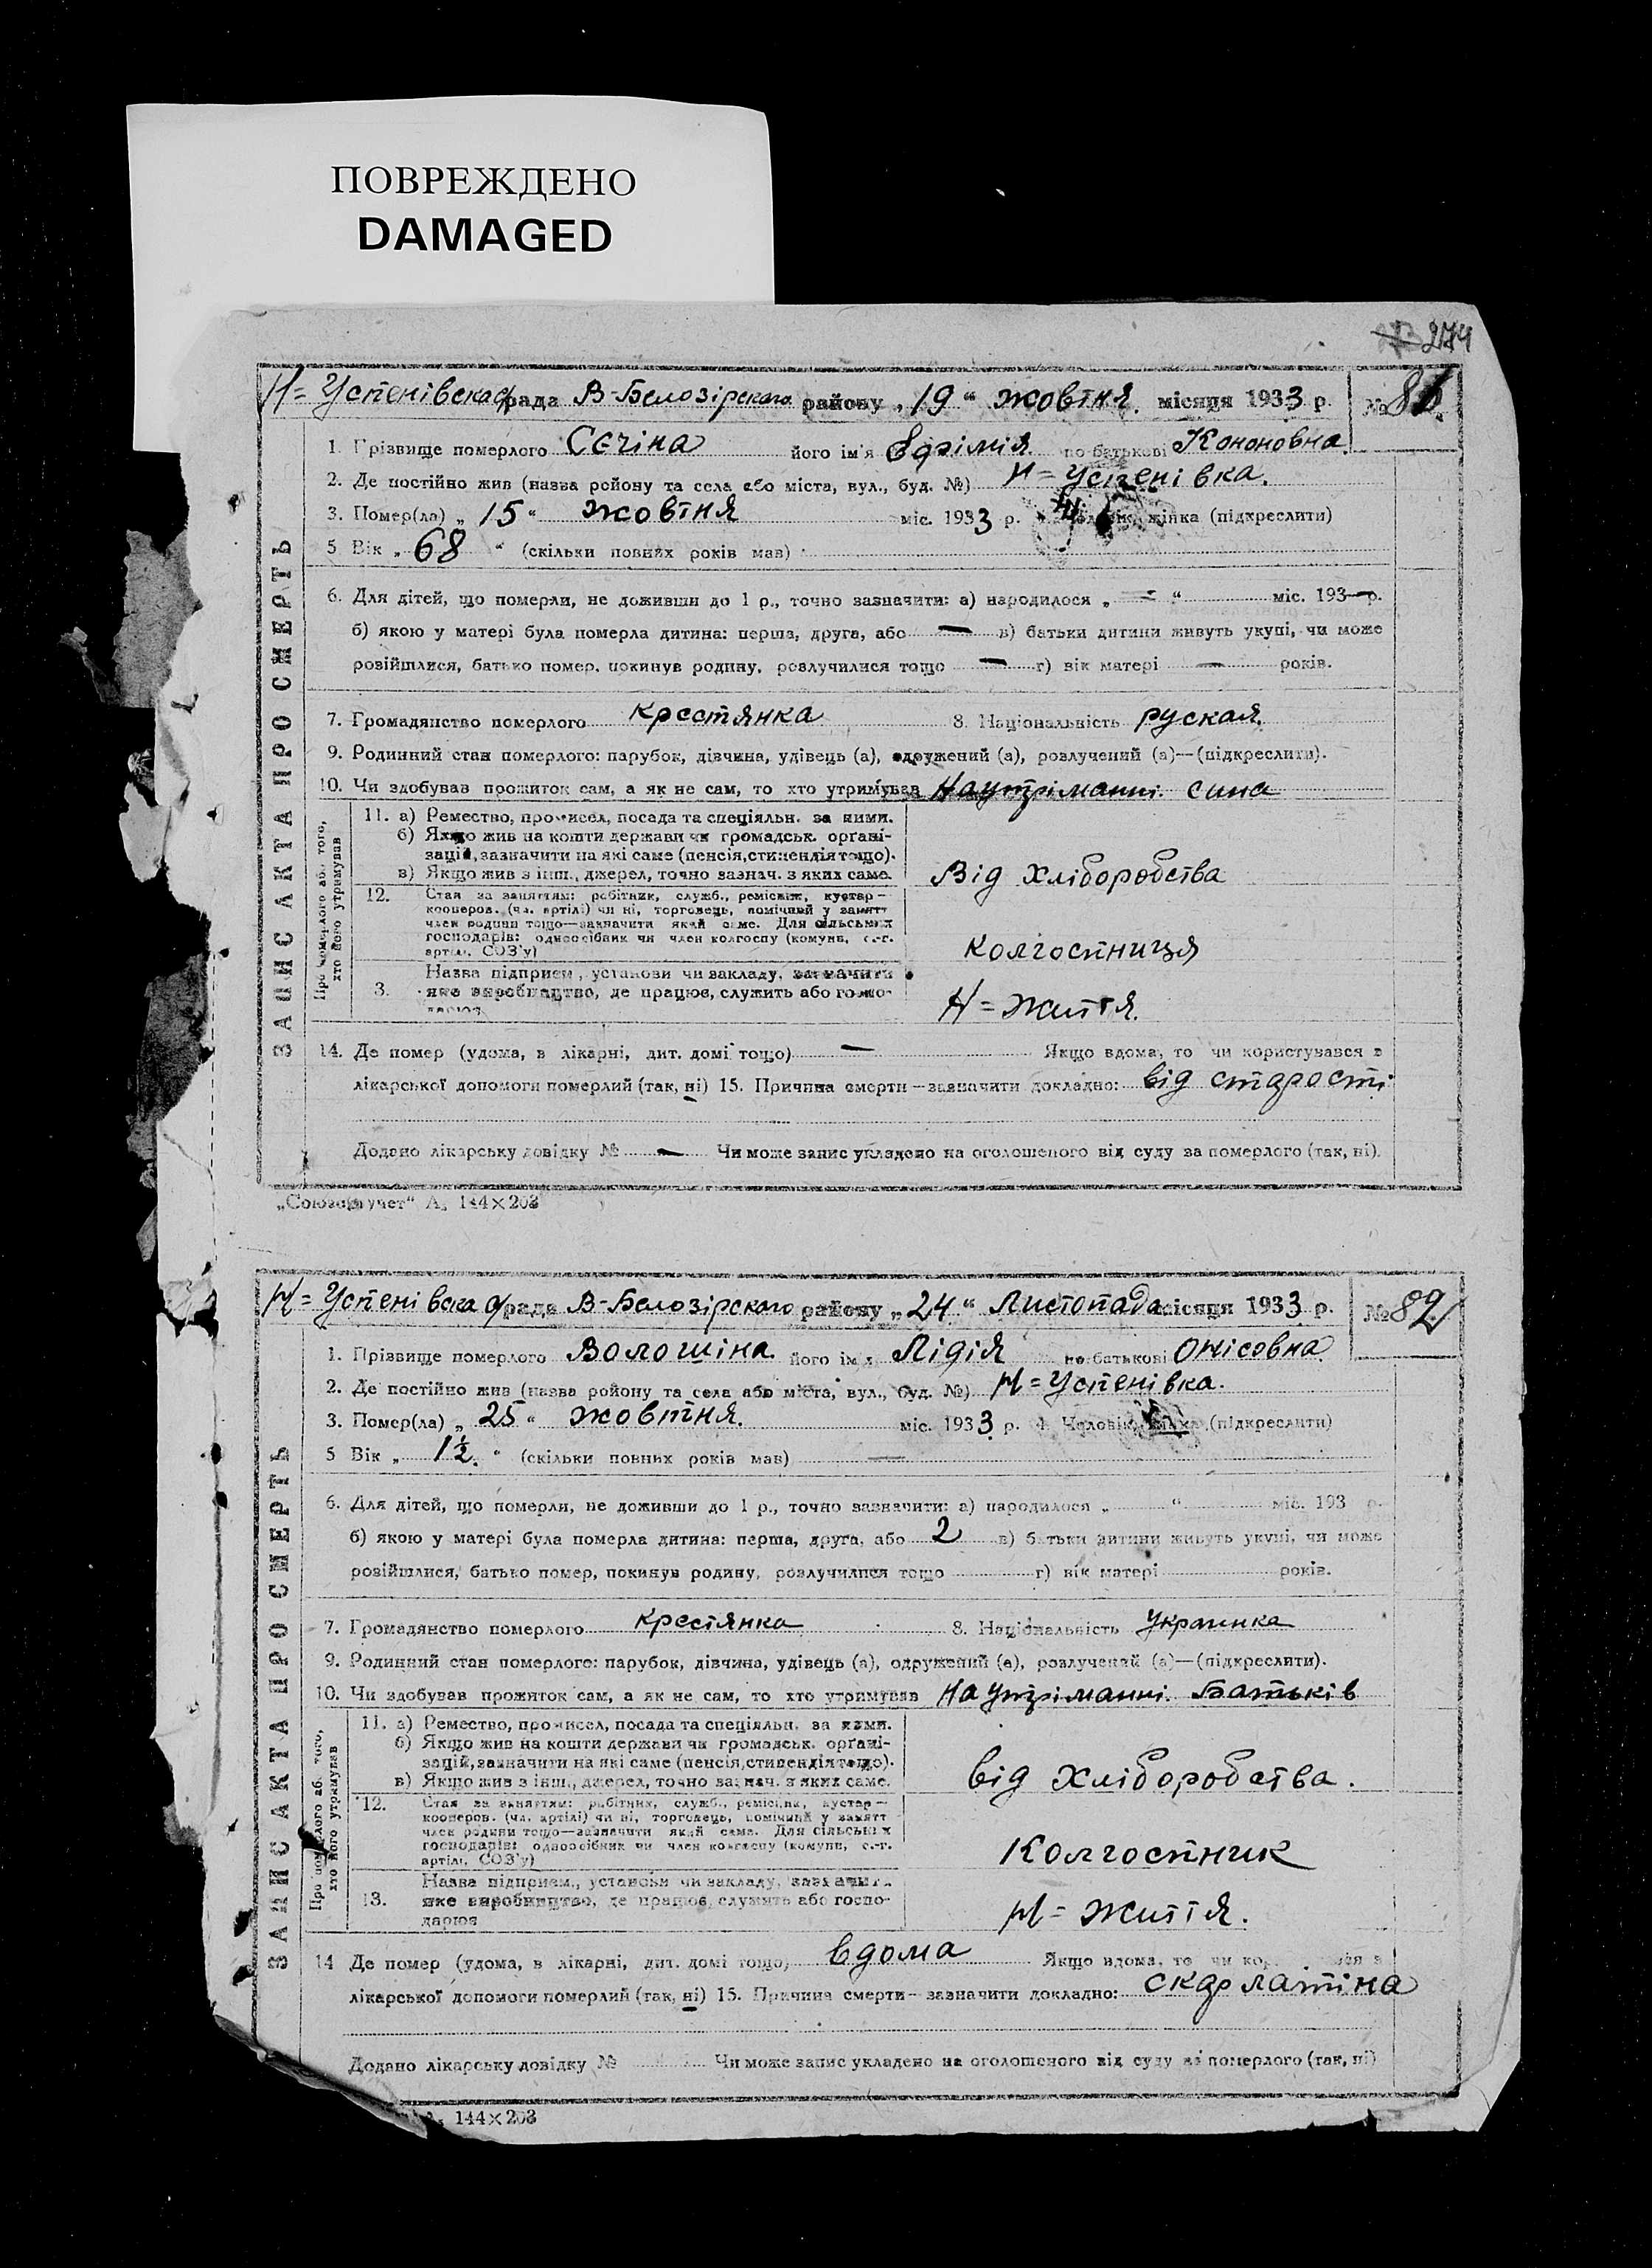 ПОВРЕЖДЕНО
DAMAGED
274
Н=Успенівская рада В-Белозірского району „19“ жовтня місяця 1933 р. № 81
ЗАПИС АКТА ПРО СМЕРТЬ
1. Прізвище померлого Сєчіна його ім'я Єфімія по батькові Кононовна
2. Де постійно жив (назва району та села або міста, вул., буд. №) Н=Успенівка.
3. Помер(ла) „15“ жовтня міс. 1933 р. жінка (підкреслити)
5 Вік „68“ (скільки повних років мав)
6. Для дітей, що померли, не доживши до 1 р., точно зазначити: а) народилося „ — “ міс. 193— р.
б) якою у матері була померла дитина: перша, друга, або — в) батьки дитини живуть укупі, чи може
розійшлися, батько помер, покинув родину, розлучилися тощо — г) вік матері — років.
7. Громадянство померлого крестянка 8. Національність руская.
9. Родинний стан померлого: парубок, дівчина, удівець (а), одружений (а), розлучений (а)—(підкреслити).
10. Чи здобував прожиток сам, а як не сам, то хто утримував На утріманні сина
Про померлого або того, хто його утримував
11. а) Ремество, промисел, посада та спеціяльн. за ними.
б) Якщо жив на кошти держави чи громадськ. органі-
зацій, зазначити на які саме (пенсія, стипендія тощо).
в) Якщо жив з інш., джерел, точно зазнач. з яких саме.
Від хліборобства
12. Стан за заняттям: робітник, служб., ремісник, кустар—
кооперов. (чл. артілі) чи ні, торговець, помічний у занятт
член родини тощо—зазначити який саме. Для сільських
господарів: одноосібник чи член колгоспу (комуни, с.-г.
артілі, СОЗ'у)
колгоспниця
Назва підприєм., установи чи закладу, зазначити
3. яке виробництво, де працює, служить або госпо-
дарює
Н=життя.
14. Де помер (удома, в лікарні, дит. домі тощо) — Якщо вдома, то чи користувався з
лікарської допомоги померлий (так, ні) 15. Причина смерти—зазначити докладно: від старості
Додано лікарську довідку № — Чи може запис укладено на оголошеного від суду за померлого (так, ні).
„Союзоргучет“ А₅ 144×203
Н=Успенівская рада В-Белозірского району „24“ Листопада місяця 1933 р. № 82
ЗАПИС АКТА ПРО СМЕРТЬ
1. Прізвище померлого Волошіна його ім'я Лідія по батькові Онісовна
2. Де постійно жив (назва району та села або міста, вул., буд. №) Н=Успенівка.
3. Помер(ла) „25“ жовтня. міс. 1933 р. 4. Чоловік, жінка (підкреслити)
5 Вік „1½“ (скільки повних років мав) —
6. Для дітей, що померли, не доживши до 1 р., точно зазначити: а) народилося „ “ міс. 193 р.
б) якою у матері була померла дитина: перша, друга, або 2 в) батьки дитини живуть укупі, чи може
розійшлися, батько помер, покинув родину, розлучилися тощо г) вік матері років.
7. Громадянство померлого крестянка 8. Національність Украинка
9. Родинний стан померлого: парубок, дівчина, удівець (а), одружений (а), розлучений (а)—(підкреслити).
10. Чи здобував прожиток сам, а як не сам, то хто утримував На утріманні Батьків
Про померлого або того, хто його утримував
11. а) Ремество, промисел, посада та спеціяльн. за ними.
б) Якщо жив на кошти держави чи громадськ. органі-
зацій, зазначити на які саме (пенсія, стипендія тощо).
в) Якщо жив з інш., джерел, точно зазнач. з яких саме.
від хліборобства.
12. Стан за заняттям: робітник, служб., ремісник, кустар—
кооперов. (чл. артілі) чи ні, торговець, помічний у занятт
член родини тощо—зазначити який саме. Для сільських
господарів: одноосібник чи член колгоспу (комуни, с.-г.
артілі, СОЗ'у)
Колгоспник
Назва підприєм., установи чи закладу, зазначити
13. яке виробництво, де працює, служить або госпо-
дарює
Н=життя.
14 Де помер (удома, в лікарні, дит. домі тощо) вдома Якщо вдома, то чи кор ися з
лікарської допомоги померлий (так, ні) 15. Причина смерти—зазначити докладно: скарлатіна
Додано лікарську довідку № Чи може запис укладено на оголошеного від суду за померлого (так, ні)
А₅ 144×203